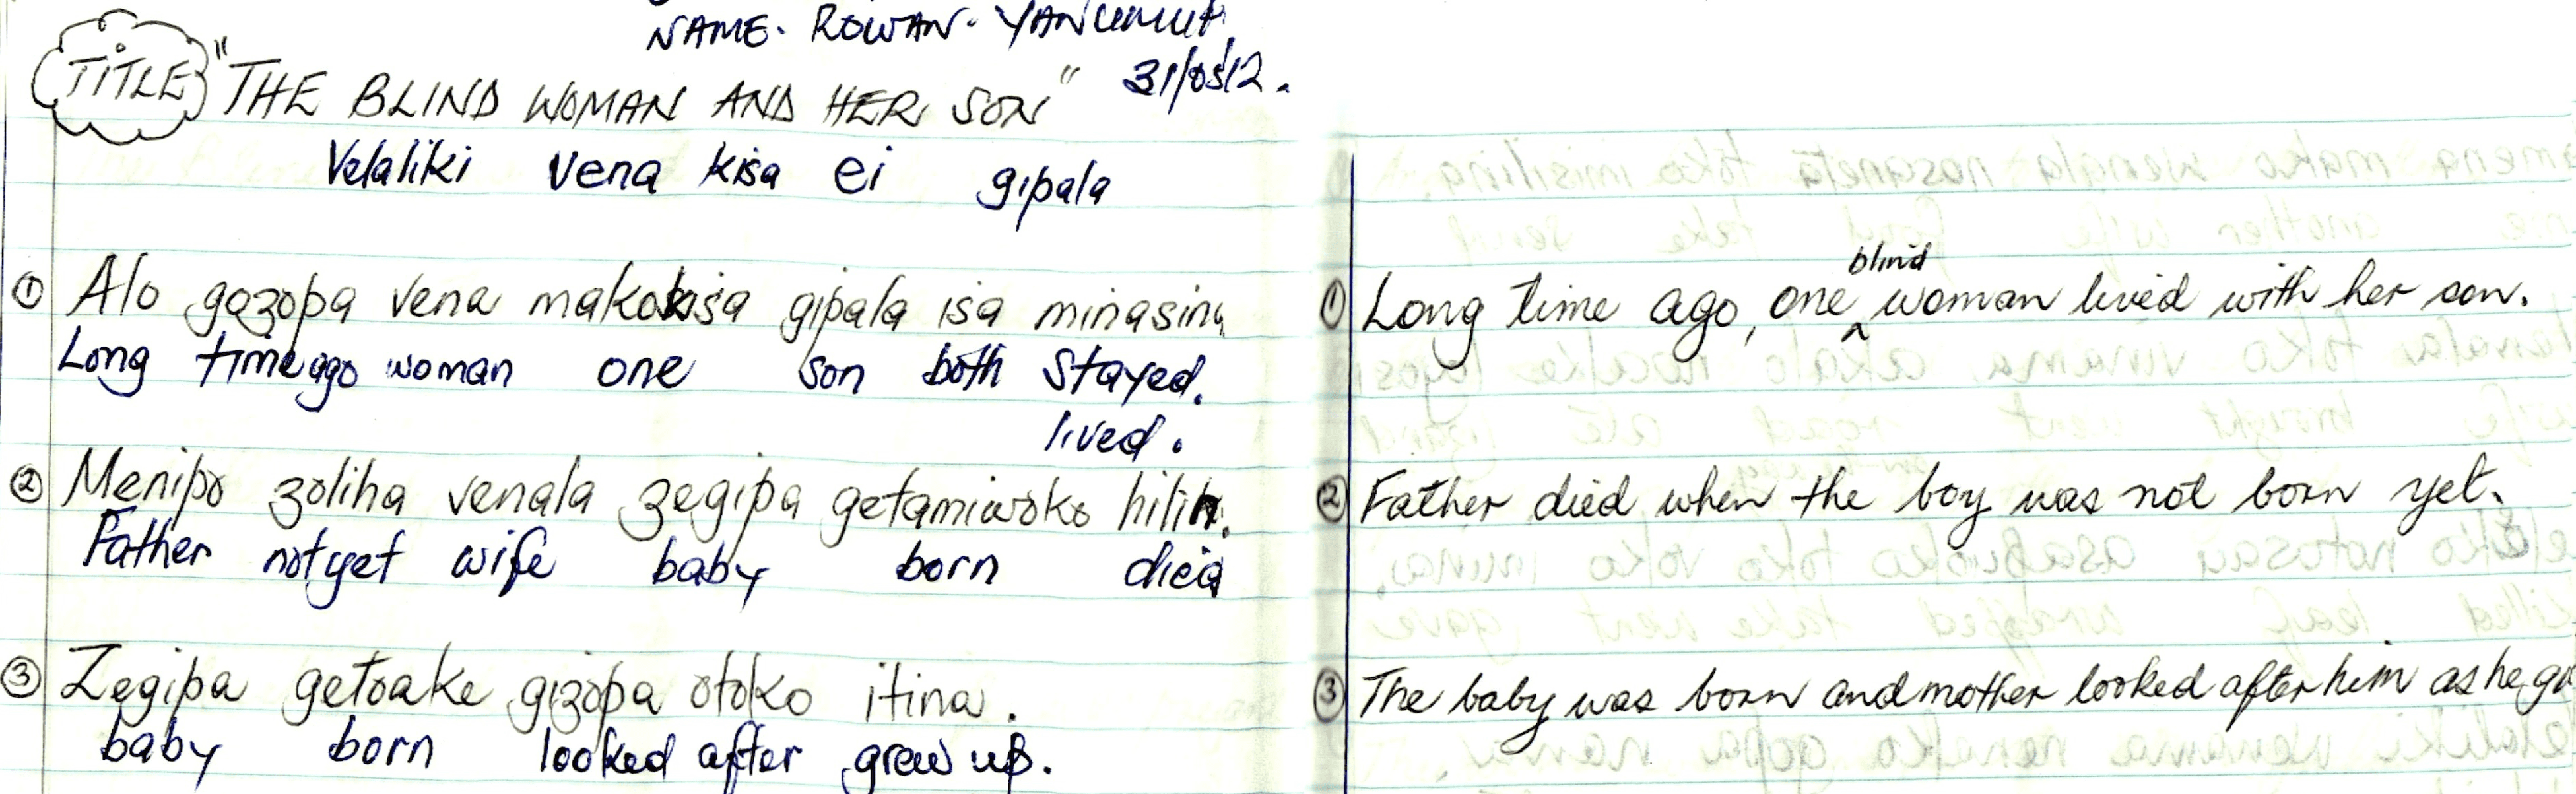 NAME. ROWAN. YANUMUT
TITLE "THE BLIND WOMAN AND HER SON" 31/05/12.
Velaliki vena kisa ei gipala
① Alo gozopa vena makokisa gipala isa minasina
Long time ago woman one son both stayed.
lived.
② Menipo zoliha venala zegipa getamiwoko hilin.
Father not yet wife baby born died
③ Zegipa getoake gizopa otoko itina.
baby born looked after grew up.
① Long time ago, one blind woman lived with her son.
② Father died when the boy was not born yet.
③ The baby was born and mother looked after him as he